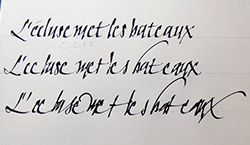 L'écluse met les bateaux
L'ecluse met les bateaux
L'ecluse met les bateaux